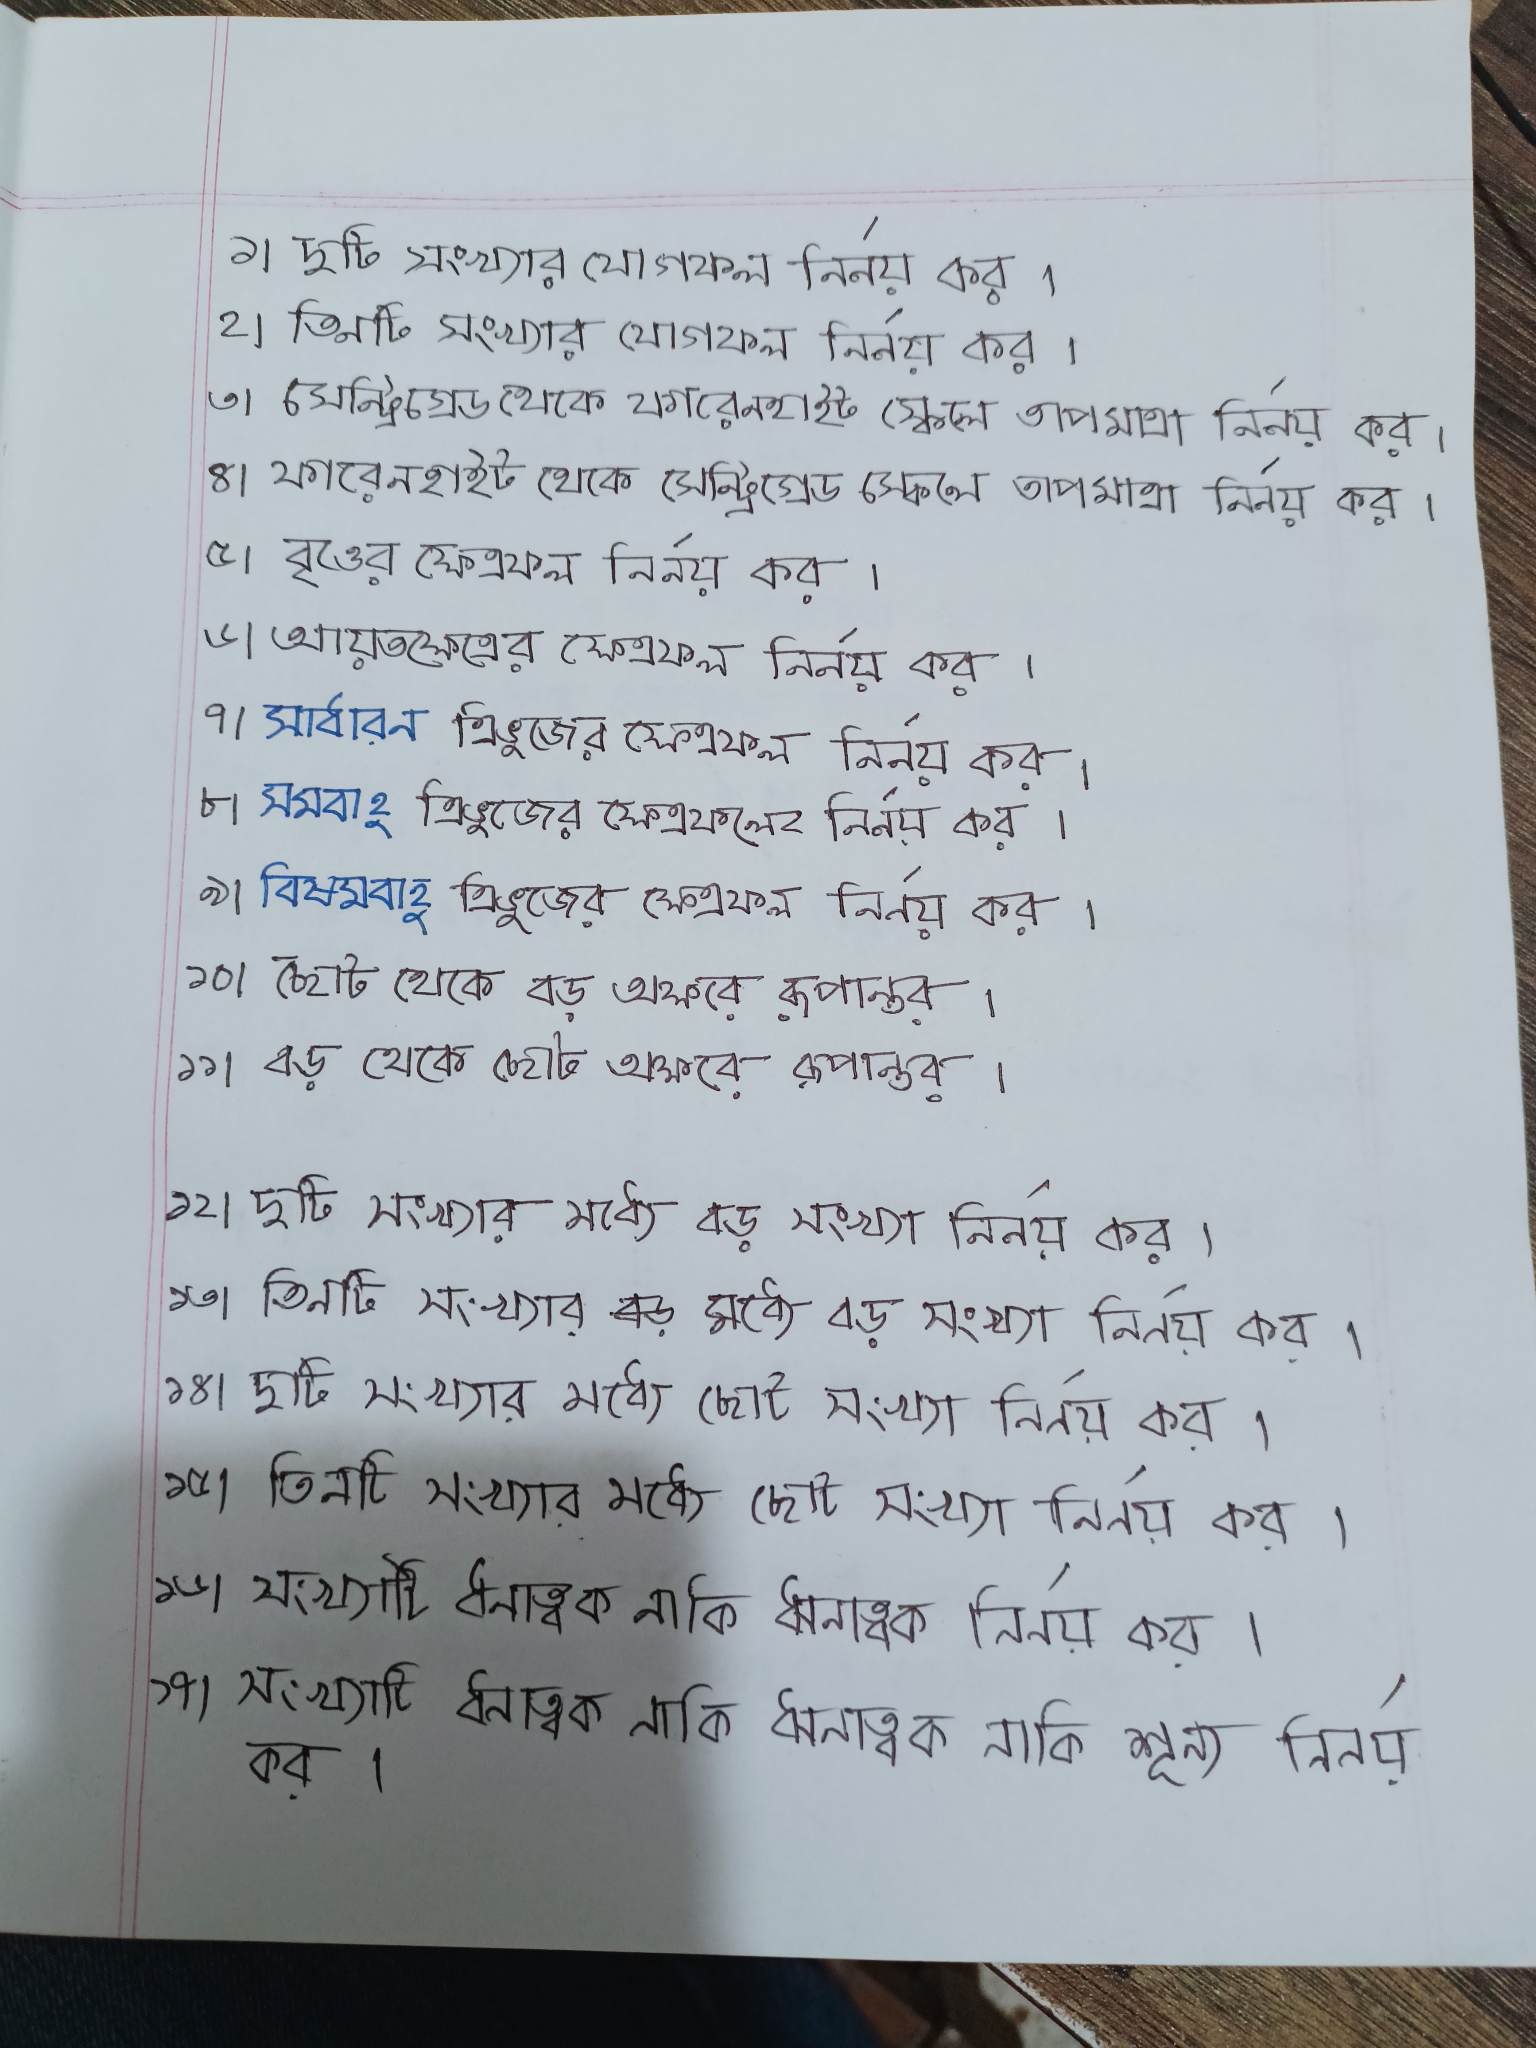 ১। দুটি সংখ্যার যোগফল নির্নয় কর ।
২। তিনটি সংখ্যার যোগফল নির্নয় কর ।
৩। সেন্ট্রিগ্রেড থেকে ফারেনহাইট স্কেলে তাপমাত্রা নির্নয় কর ।
৪। ফারেনহাইট থেকে সেন্ট্রিগ্রেড স্কেলে তাপমাত্রা নির্নয় কর ।
৫। বৃত্তের ক্ষেত্রফল নির্নয় কর ।
৬। আয়তক্ষেত্রের ক্ষেত্রফল নির্নয় কর ।
৭। সার্ধারন ত্রিভুজের ক্ষেত্রফল নির্নয় কর ।
৮। সমবাহু ত্রিভুজের ক্ষেত্রফলের নির্নয় কর ।
৯। বিষমবাহু ত্রিভুজের ক্ষেত্রফল নির্নয় কর ।
১০। ছোট থেকে বড় অক্ষরে রূপান্তর ।
১১। বড় থেকে ছোট অক্ষরে রূপান্তর ।
১২। দুটি সংখ্যার মধ্যে বড় সংখ্যা নির্নয় কর ।
১৩। তিনটি সংখ্যার বড় মধ্যে বড় সংখ্যা নির্নয় কর ।
১৪। দুটি সংখ্যার মধ্যে ছোট সংখ্যা নির্নয় কর ।
১৫। তিনটি সংখ্যার মধ্যে ছোট সংখ্যা নির্নয় কর ।
১৬। সংখ্যাটি ধনাত্বক নাকি ঋনাত্বক নির্নয় কর ।
১৭। সংখ্যাটি ধনাত্বক নাকি ঋনাত্বক নাকি শূন্য নির্নয়
কর ।